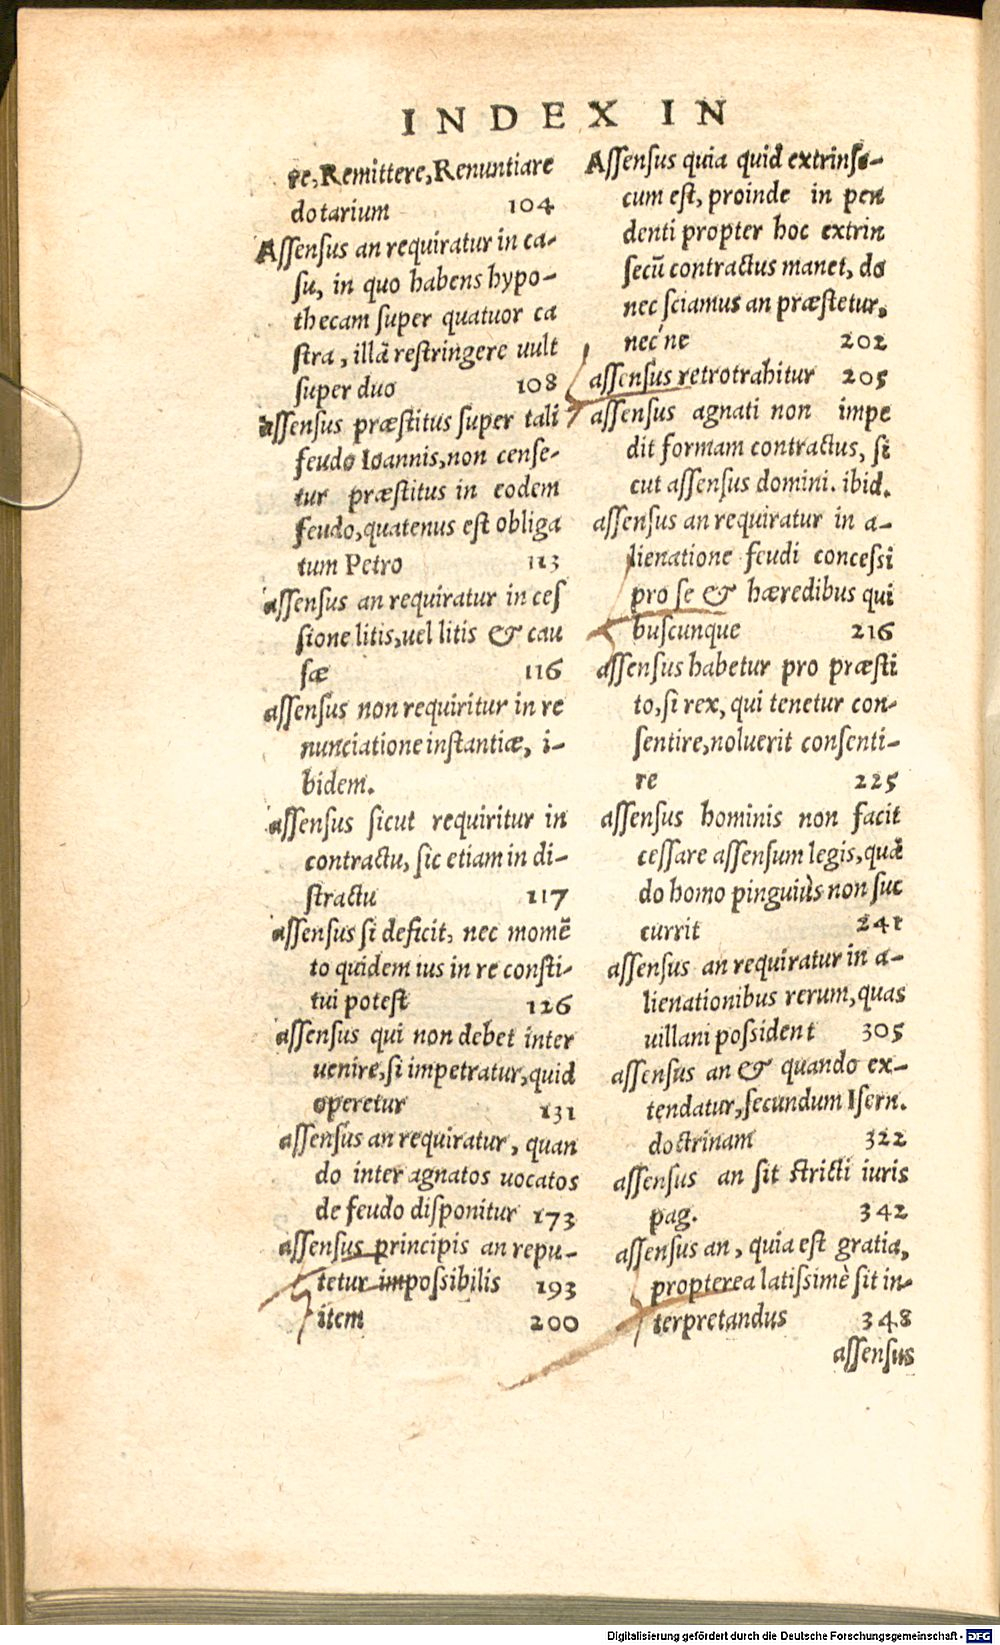 INDEX IN
re, Remittere, Renuntiare
dotarium 104
Assensus an requiratur in ca-
su, in quo habens hypo-
thecam super quatuor ca
stra, illā restringere uult
super duo 108
assensus præstitus super tali
feudo Ioannis, non cense-
tur præstitus in eodem
feudo, quatenus est obliga
tum Petro 113
assensus an requiratur in ces
sione litis, uel litis & cau
sæ 116
assensus non requiritur in re
nunciatione instantiæ, i-
bidem.
assensus sicut requiritur in
contractu, sic etiam in di-
stractu 117
assensus si deficit, nec momē
to quidem ius in re consti-
tui potest 126
assensus qui non debet inter
uenire, si impetratur, quid
operetur 131
assensus an requiratur, quan
do inter agnatos uocatos
de feudo disponitur 173
assensus principis an repu-
tetur impossibilis 193
item 200
Assensus quia quid extrinse-
cum est, proinde in pen
denti propter hoc extrin
secū contractus manet, do
nec sciamus an præstetur,
nec ne 202
assensus retrotrahitur 205
assensus agnati non impe
dit formam contractus, si
cut assensus domini. ibid.
assensus an requiratur in a-
lienatione feudi concessi
pro se & hæredibus qui
buscunque 216
assensus habetur pro præsti
to, si rex, qui tenetur con-
sentire, noluerit consenti-
re 225
assensus hominis non facit
cessare assensum legis, quā
do homo pinguiùs non suc
currit 241
assensus an requiratur in a-
lienationibus rerum, quas
uillani possident 305
assensus an & quando ex-
tendatur, secundum Isern.
doctrinam 322
assensus an sit stricti iuris
pag. 342
assensus an, quia est gratia,
propterea latissimè sit in-
terpretandus 348
assensus
Digitalisierung gefördert durch die Deutsche Forschungsgemeinschaft - DFG